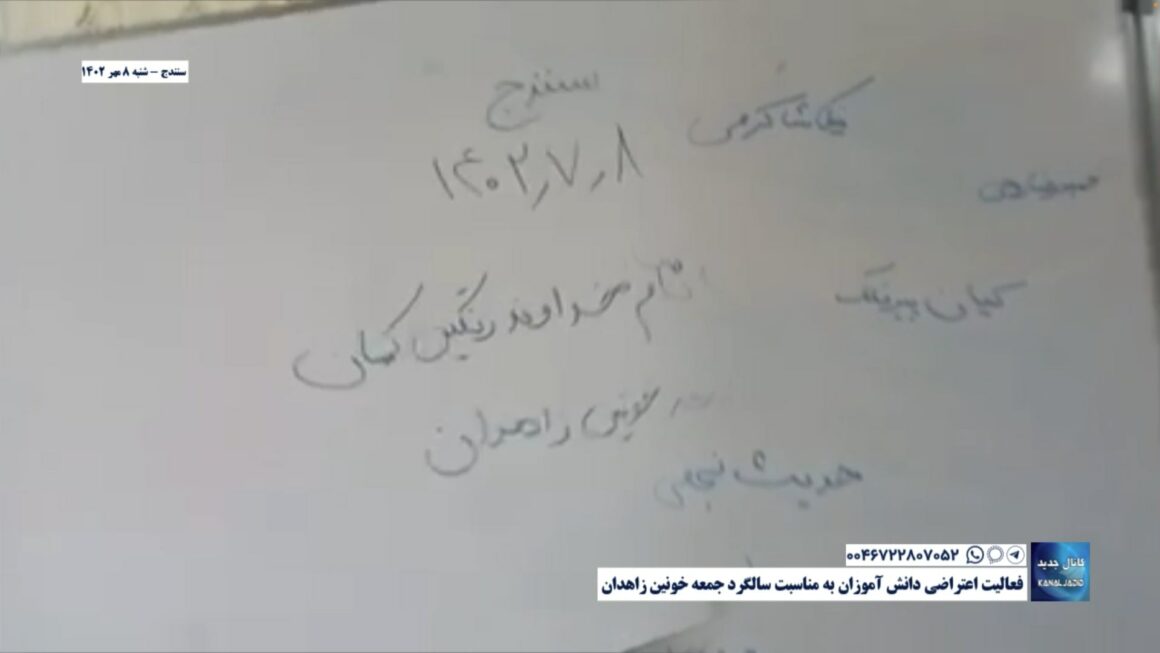 سنندج – شنبه ۸ مهر ۱۴۰۲
سنندج
۱۴۰۲٫۷٫۸
نیکا شاکرمی
کیان پیرفلک
نام خداوند رنگین کمان
خونین زاهدان
حدیث نجفی
۰۰۴۶۷۲۲۸۰۷۰۵۲
فعالیت اعتراضی دانش آموزان به مناسبت سالگرد جمعه خونین زاهدان
کانال جدید
KANALJADID